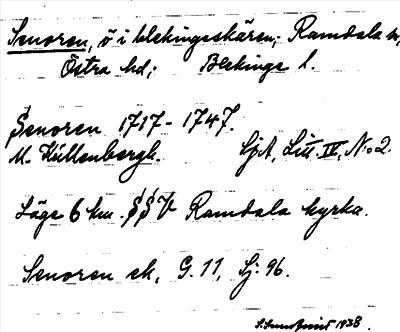 Senoren, ö i blekingeskären; Ramdala sn,
Östra hd; Blekinge l.
Senoren 1717-1747.
M. Küllenbergh. SjA, Litt. IV, No 2.
Läge 6 km. SSV Ramdala kyrka.
Senoren ek, G. 11, Sj. 96.
1938.